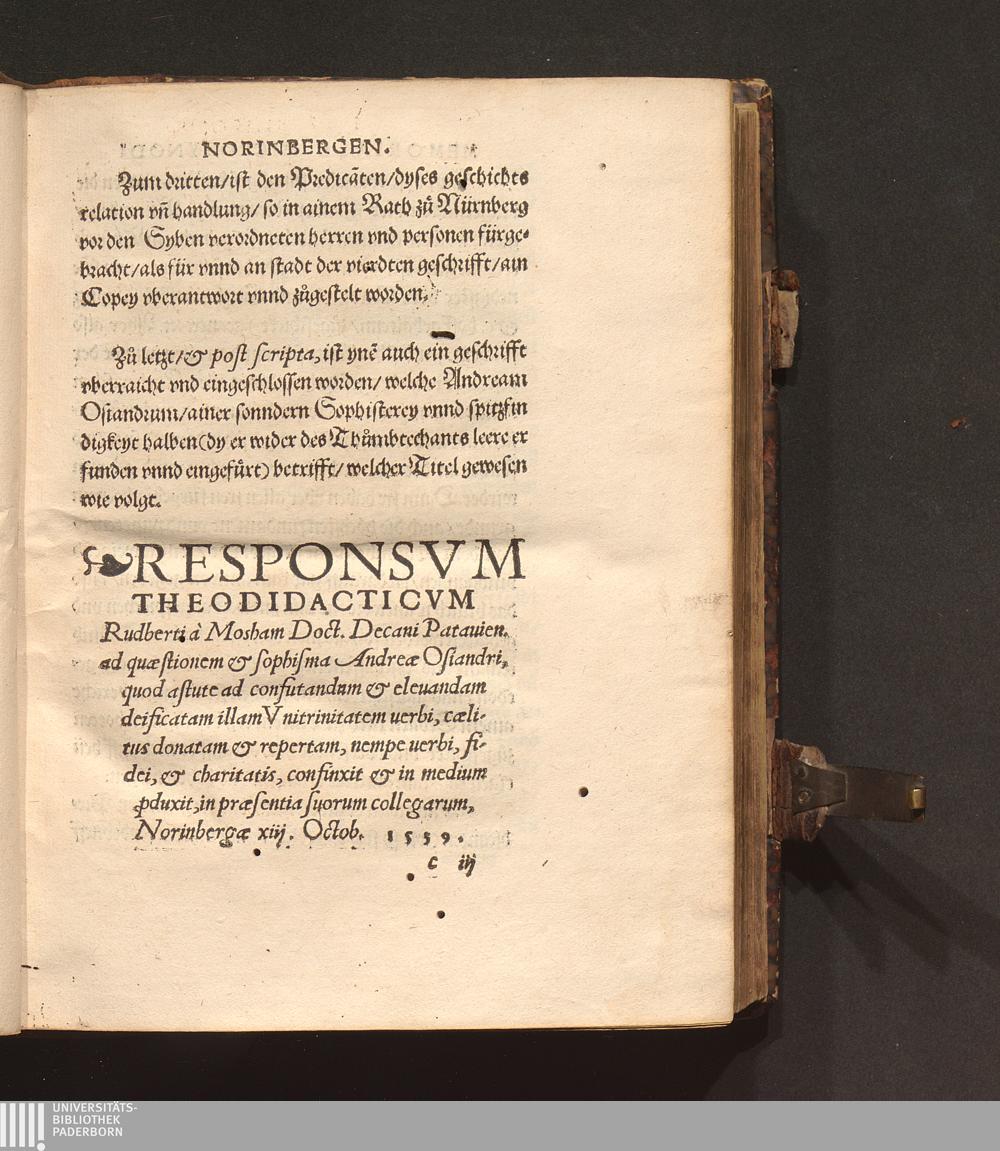 NORINBERGEN.
Zum dritten/ist den Predicãten/dyses geschichts
relation vñ handlung/ so in ainem Rath zů Nürnberg
vor den Syben verordneten herren vnd personen fürge-
bracht/als für vnnd an stadt der vierdten geschrifft/ain
Copey vberantwort vnnd zůgestelt worden.
Zů letzt/& post scripta, ist ynē auch ein geschrifft
vberraicht vnd eingeschlossen worden/ welche Andream
Osiandrum/ainer sonndern Sophisterey vnnd spitzfin
digkeyt halben(dy er wider des Thůmbtechants leere er
funden vnnd eingefürt) betrifft/ welcher Titel gewesen
wie volgt.
RESPONSVM
THEODIDACTICVM
Rudberti à Mosham Doct. Decani Patauien.
ad quæstionem & sophisma Andreæ Osiandri,
quod astute ad confutandum & eleuandam
deificatam illam Vnitrinitatem uerbi, cæli-
tus donatam & repertam, nempe uerbi, fi-
dei, & charitatis, confinxit & in medium
ꝓduxit, in præsentia suorum collegarum,
Norinbergæ xiij. Octob. 1559.
c iij
UNIVERSITÄTS-
BIBLIOTHEK
PADERBORN